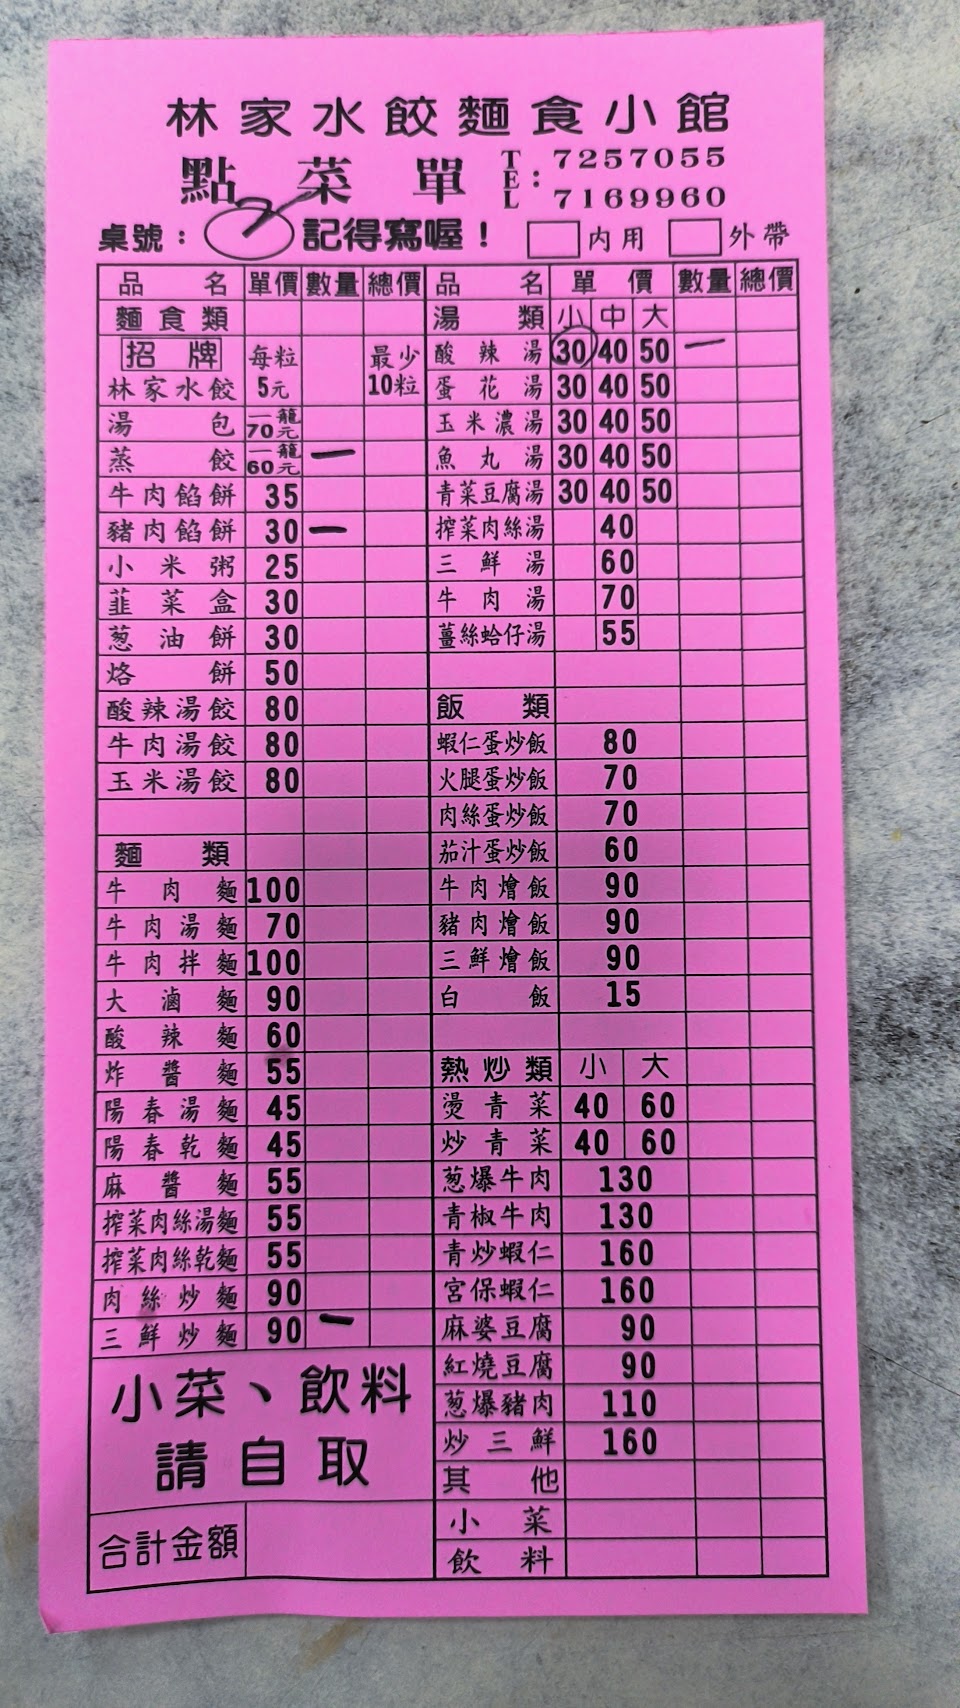 林家水餃麵食小館
點菜單 TEL: 7257055
7169960
桌號: 7 記得寫喔! 內用 外帶
品名 單價 數量 總價
麵食類
招牌 每粒 最少
林家水餃 5元 10粒
湯包 一籠70元
蒸餃 一籠60元 一
牛肉餡餅 35
豬肉餡餅 30 一
小米粥 25
韮菜盒 30
葱油餅 30
烙餅 50
酸辣湯餃 80
牛肉湯餃 80
玉米湯餃 80
麵類
牛肉麵 100
牛肉湯麵 70
牛肉拌麵 100
大滷麵 90
酸辣麵 60
炸醬麵 55
陽春湯麵 45
陽春乾麵 45
麻醬麵 55
搾菜肉絲湯麵 55
搾菜肉絲乾麵 55
肉絲炒麵 90
三鮮炒麵 90 一
小菜、飲料
請自取
合計金額
品名 單價 數量 總價
湯類 小 中 大
酸辣湯 30 40 50 一
蛋花湯 30 40 50
玉米濃湯 30 40 50
魚丸湯 30 40 50
青菜豆腐湯 30 40 50
搾菜肉絲湯 40
三鮮湯 60
牛肉湯 70
薑絲蛤仔湯 55
飯類
蝦仁蛋炒飯 80
火腿蛋炒飯 70
肉絲蛋炒飯 70
茄汁蛋炒飯 60
牛肉燴飯 90
豬肉燴飯 90
三鮮燴飯 90
白飯 15
熱炒類 小 大
燙青菜 40 60
炒青菜 40 60
葱爆牛肉 130
青椒牛肉 130
青炒蝦仁 160
宮保蝦仁 160
麻婆豆腐 90
紅燒豆腐 90
葱爆豬肉 110
炒三鮮 160
其他
小菜
飲料